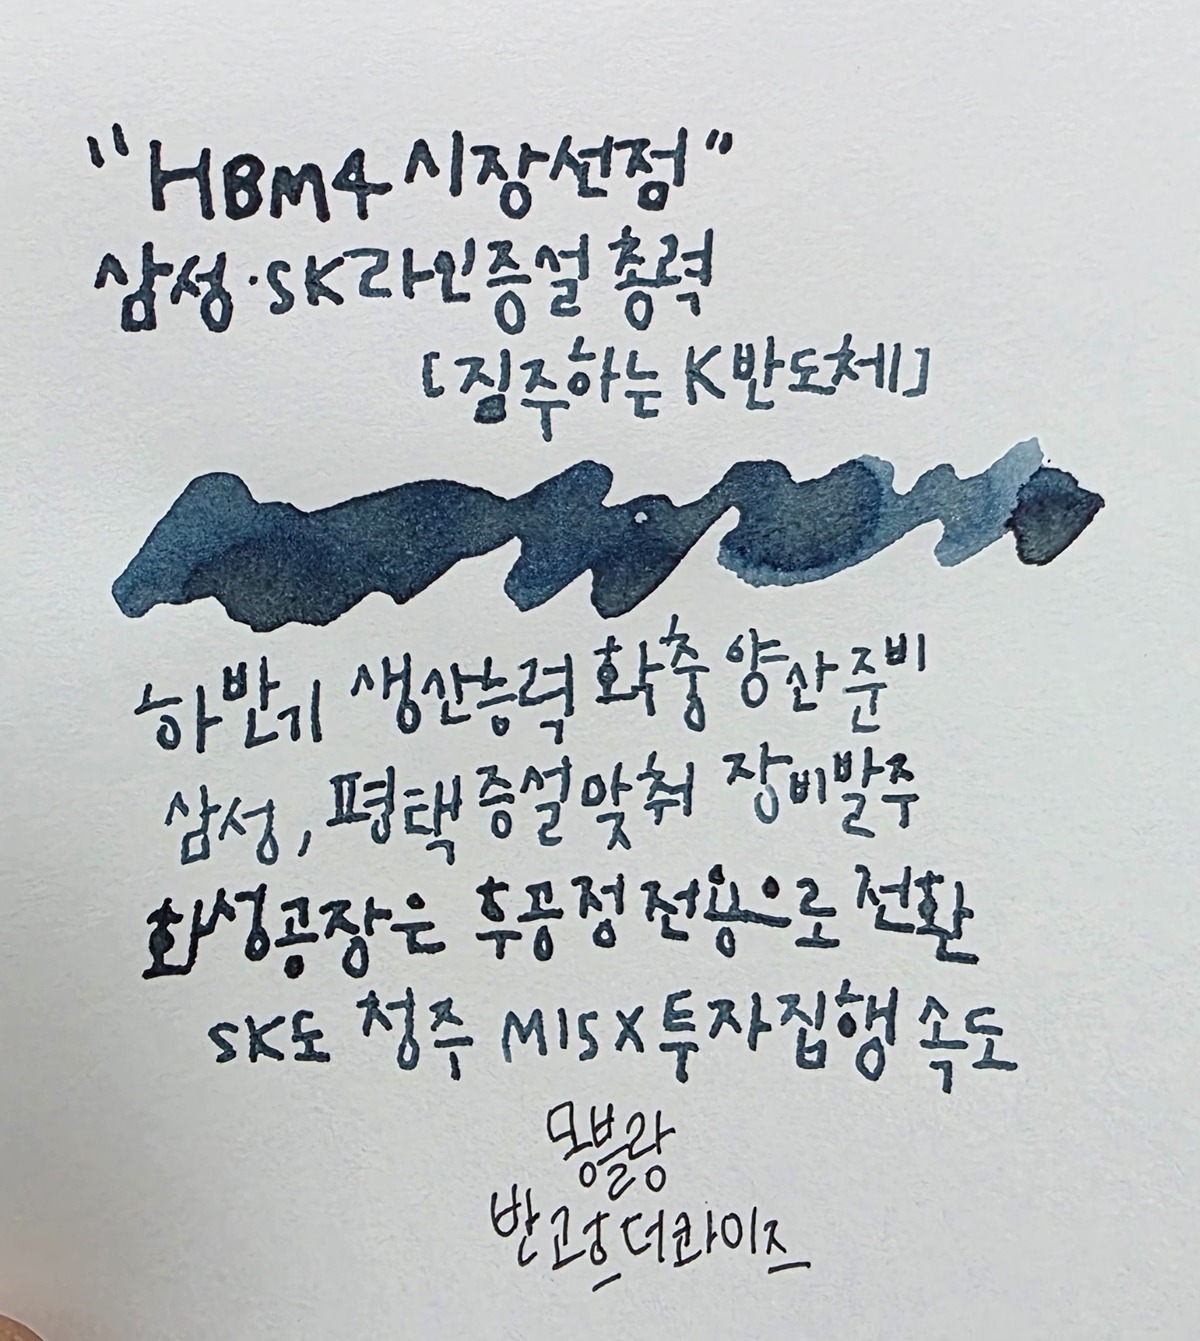 "HBM4 시장선점"
삼성·SK라인증설 총력
[질주하는 K반도체]
하반기 생산능력 확충 양산준비
삼성, 평택증설맞춰 장비발주
화성공장은 후공정 전용으로 전환
SK도 청주 M15X투자집행 속도
몽블랑
반고흐더콰이즈